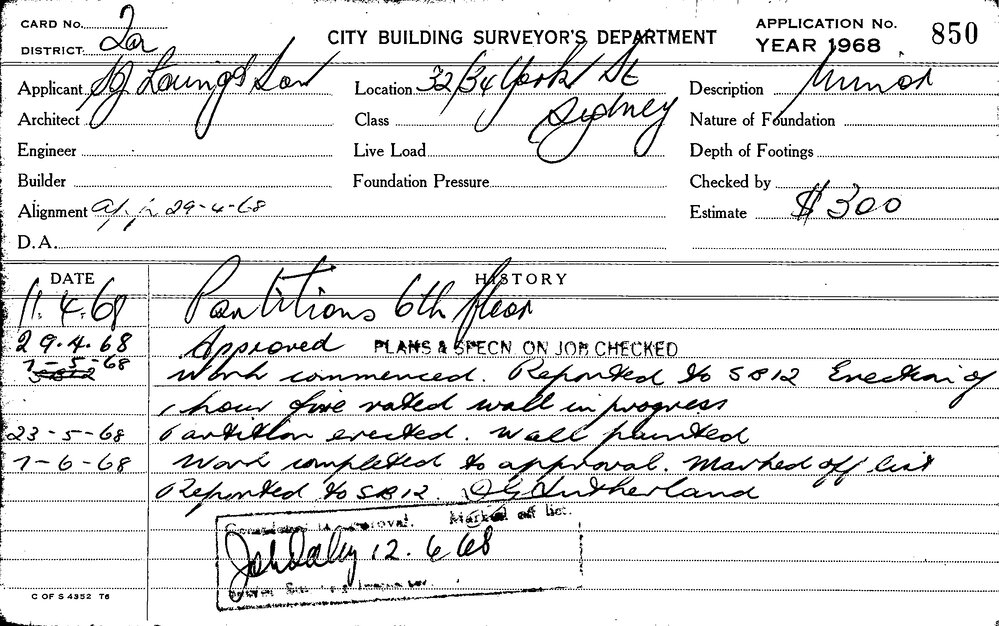 CARD No. 2
DISTRICT. 2a
CITY BUILDING SURVEYOR'S DEPARTMENT
APPLICATION No. 850
YEAR 1968
Applicant Son Location 32/34 York St Description Minor
Architect Class Sydney Nature of Foundation
Engineer Live Load Depth of Footings
Builder Foundation Pressure Checked by
Alignment 29-4-68 Estimate $300
D.A.
DATE HISTORY
11.4.68 Partitions 6th floor
29.4.68 Approved PLANS & SPECN ON JOB CHECKED
7-5-68 Work commenced. Reported to SB12 Erection of
1 hour fire rated wall in progress
23-5-68 Partition erected. Wall painted
7-6-68 Work completed to approval. Marked off list
Reported to SB12. Sutherland
Completed to approval. Marked off list.
12.6.68
C OF S 4352 76